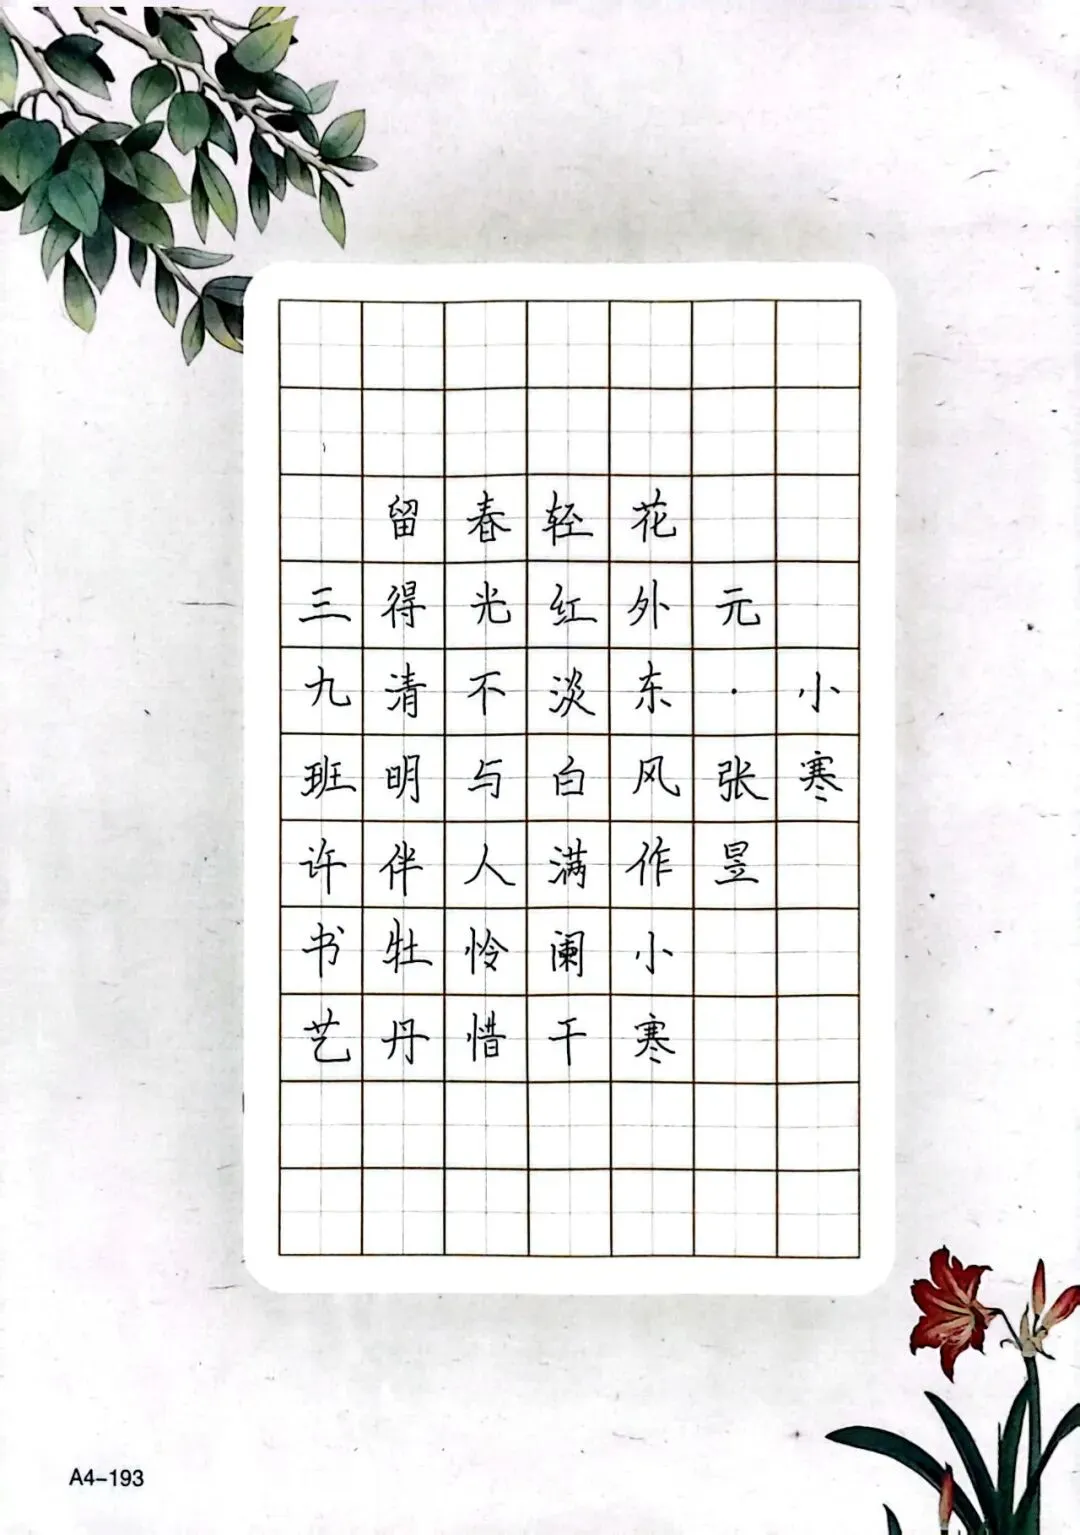 小寒
元·张昱
花外东风作小寒
轻红淡白满阑干
春光不与人怜惜
留得清明伴牡丹
三九班许书艺
A4-193